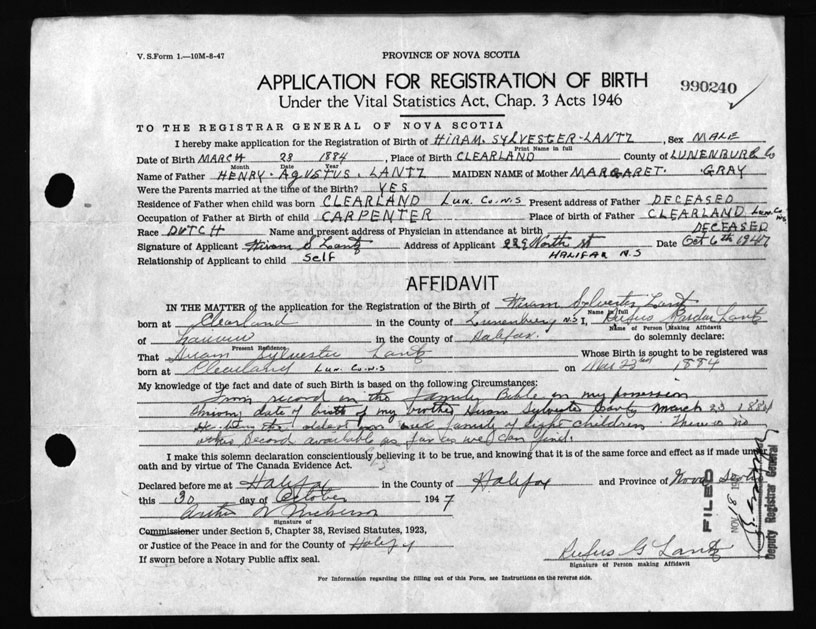 V. S. Form 1.—10M-8-47
PROVINCE OF NOVA SCOTIA
APPLICATION FOR REGISTRATION OF BIRTH
990240
Under the Vital Statistics Act, Chap. 3 Acts 1946
TO THE REGISTRAR GENERAL OF NOVA SCOTIA
I hereby make application for the Registration of Birth of HIRAM. SYLVESTER-LANTZ, Sex MALE
Print Name in full
Date of Birth MARCH 23 1884, Place of Birth CLEARLAND County of LUNENBURG Co
Month Date Year
Name of Father HENRY. AGVSTUS. LANTZ MAIDEN NAME of Mother MARGARET. GRAY
Were the Parents married at the time of the Birth? YES
Residence of Father when child was born CLEARLAND Lun. Co. N.S Present address of Father DECEASED
Occupation of Father at Birth of child CARPENTER Place of birth of Father CLEARLAND Lun. Co N.S
Race DUTCH Name and present address of Physician in attendance at birth DECEASED
Signature of Applicant Hiram S Lantz Address of Applicant 229 North St Date Oct 6th 1947
HALIFAX N.S
Relationship of Applicant to child Self
AFFIDAVIT
IN THE MATTER of the application for the Registration of the Birth of Hiram Sylvester Lantz
Name in full
born at Clearland in the County of Lunenburg N.S I, Rufus Lantz
Name of Person Making Affidavit
of in the County of Halifax. do solemnly declare:
Present Residence
That Hiram Sylvester Lantz Whose Birth is sought to be registered was
born at Clearland Lun. Co. N.S on Mar 23rd 1884
My knowledge of the fact and date of such Birth is based on the following Circumstances:
From record in the Family Bible in my possession
date of birth of my brother Hiram Sylvester Lantz March 23 1884
He being the oldest in our family of eight children. There is no
other record available as far as we can find.
I make this solemn declaration conscientiously believing it to be true, and knowing that it is of the same force and effect as if made under
oath and by virtue of The Canada Evidence Act.
Declared before me at Halifax in the County of Halifax and Province of Nova Scotia
this 30 day of October 1947
Signature of
Commissioner under Section 5, Chapter 38, Revised Statutes, 1923,
or Justice of the Peace in and for the County of Halifax
If sworn before a Notary Public affix seal.
Rufus G Lantz
Signature of Person making Affidavit
For Information regarding the filling out of this Form, see Instructions on the reverse side.
FILED
NOV 18
Deputy Registrar General